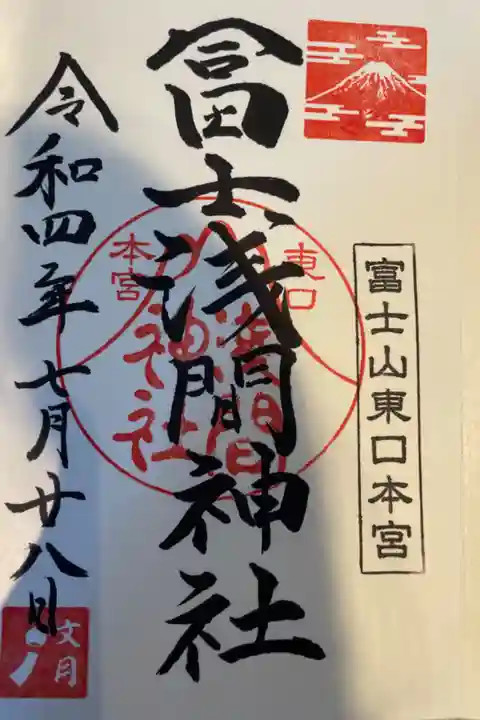 富士山東口本宮
冨士浅間神社
東口
本宮
浅間
神社
令和四年七月廿八日
文月